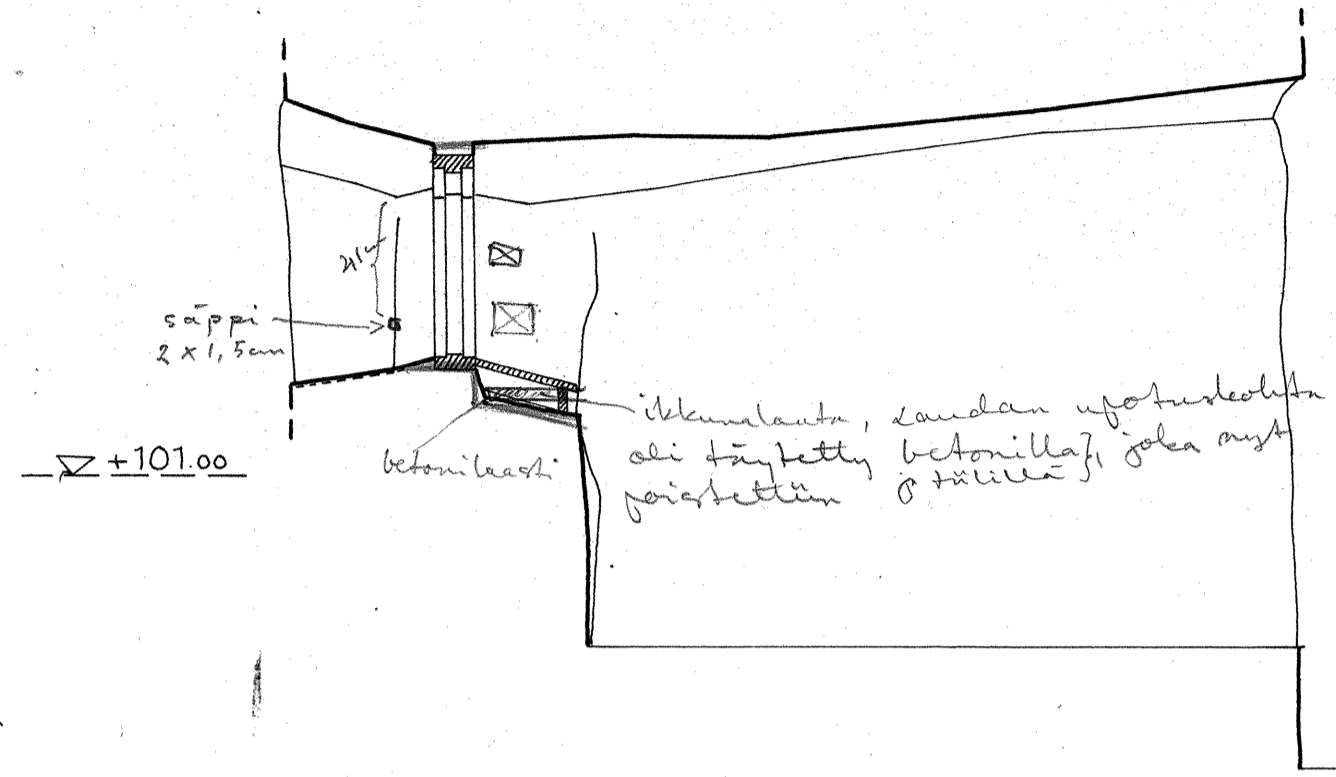 säppi
2 x 1,5cm
+101.00
betonilaasti
ikkunalauta, Laudan upotuskohta
oli täytetty betonilla}, joka nyt
poistettiin ja tiilillä}